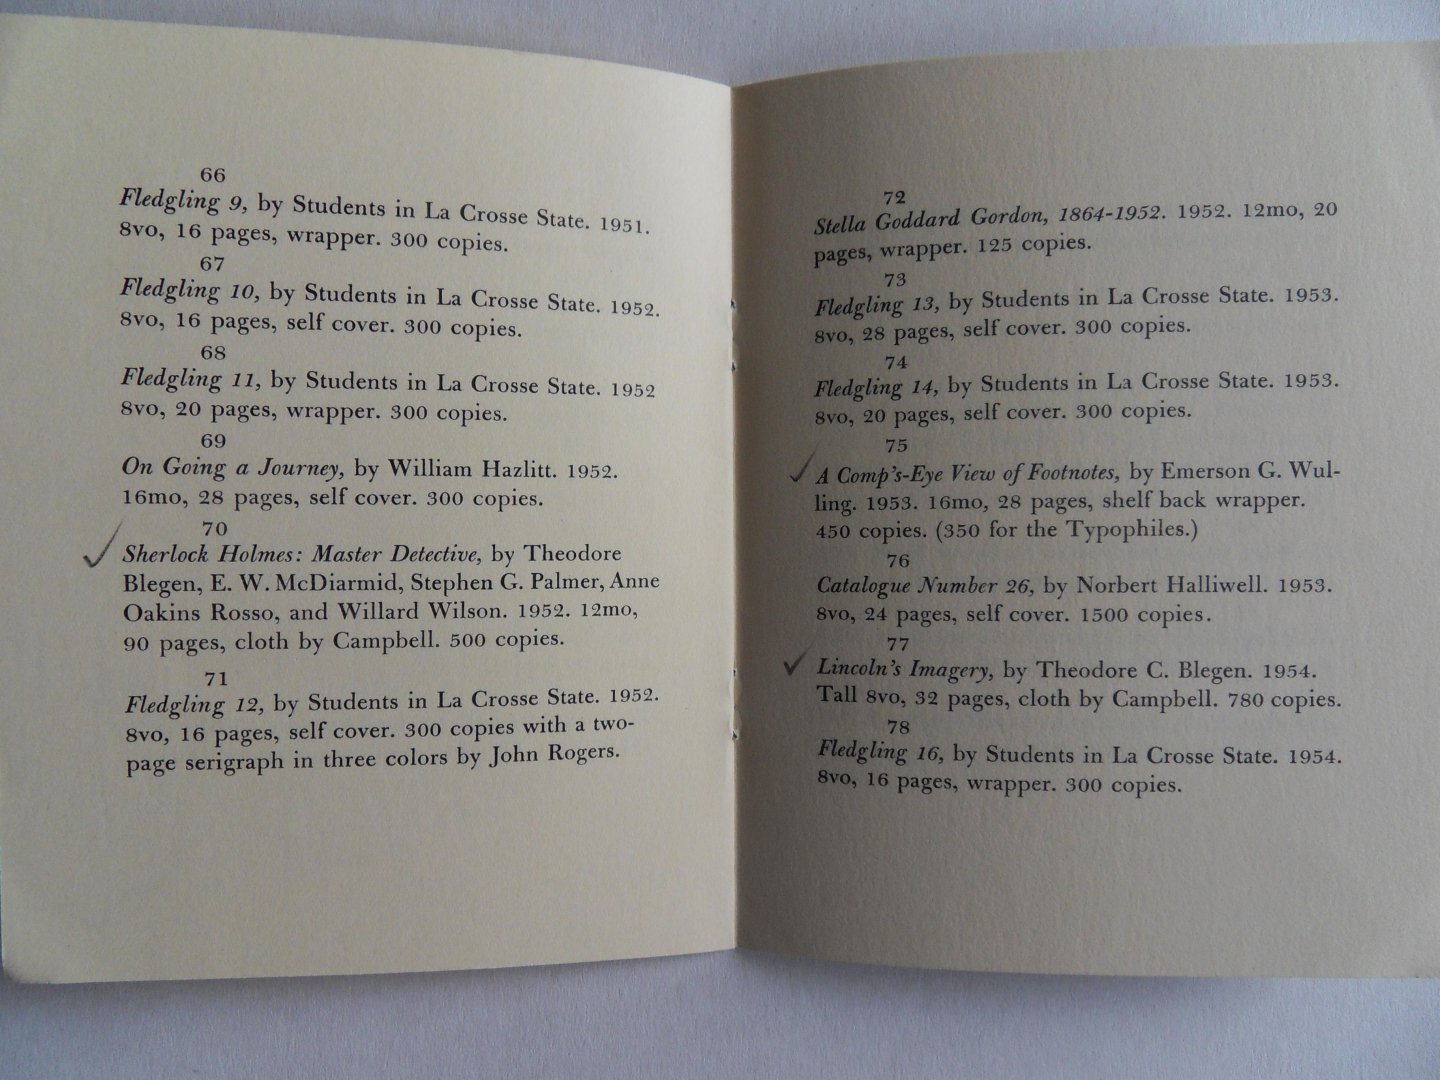 66
Fledgling 9, by Students in La Crosse State. 1951.
8vo, 16 pages, wrapper. 300 copies.
67
Fledgling 10, by Students in La Crosse State. 1952.
8vo, 16 pages, self cover. 300 copies.
68
Fledgling 11, by Students in La Crosse State. 1952
8vo, 20 pages, wrapper. 300 copies.
69
On Going a Journey, by William Hazlitt. 1952.
16mo, 28 pages, self cover. 300 copies.
70
Sherlock Holmes: Master Detective, by Theodore
Blegen, E. W. McDiarmid, Stephen G. Palmer, Anne
Oakins Rosso, and Willard Wilson. 1952. 12mo,
90 pages, cloth by Campbell. 500 copies.
71
Fledgling 12, by Students in La Crosse State. 1952.
8vo, 16 pages, self cover. 300 copies with a two-
page serigraph in three colors by John Rogers.
72
Stella Goddard Gordon, 1864-1952. 1952. 12mo, 20
pages, wrapper. 125 copies.
73
Fledgling 13, by Students in La Crosse State. 1953.
8vo, 28 pages, self cover. 300 copies.
74
Fledgling 14, by Students in La Crosse State. 1953.
8vo, 20 pages, self cover. 300 copies.
75
A Comp's-Eye View of Footnotes, by Emerson G. Wul-
ling. 1953. 16mo, 28 pages, shelf back wrapper.
450 copies. (350 for the Typophiles.)
76
Catalogue Number 26, by Norbert Halliwell. 1953.
8vo, 24 pages, self cover. 1500 copies.
77
Lincoln's Imagery, by Theodore C. Blegen. 1954.
Tall 8vo, 32 pages, cloth by Campbell. 780 copies.
78
Fledgling 16, by Students in La Crosse State. 1954.
8vo, 16 pages, wrapper. 300 copies.